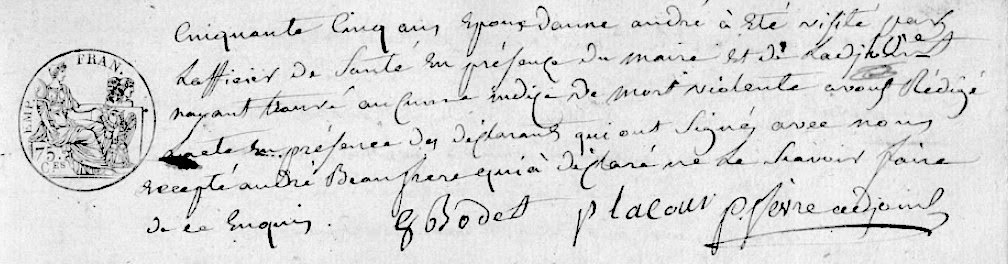 Cinquante Cinq ans Epoux danne andré à été visité par
Lofficier de Santé En présence du maire et de Ladjoint
nayant trouvé aucune indice de mort violente avons Rédigé
Lacte En présence des déclarants qui ont Signés avec nous
Excepté andré Beaufrere qui à déclaré ne Le Savoir faire
de ce Enquis. Bodet p lacour p. fevre adjoint
EMP FRAN
75 C